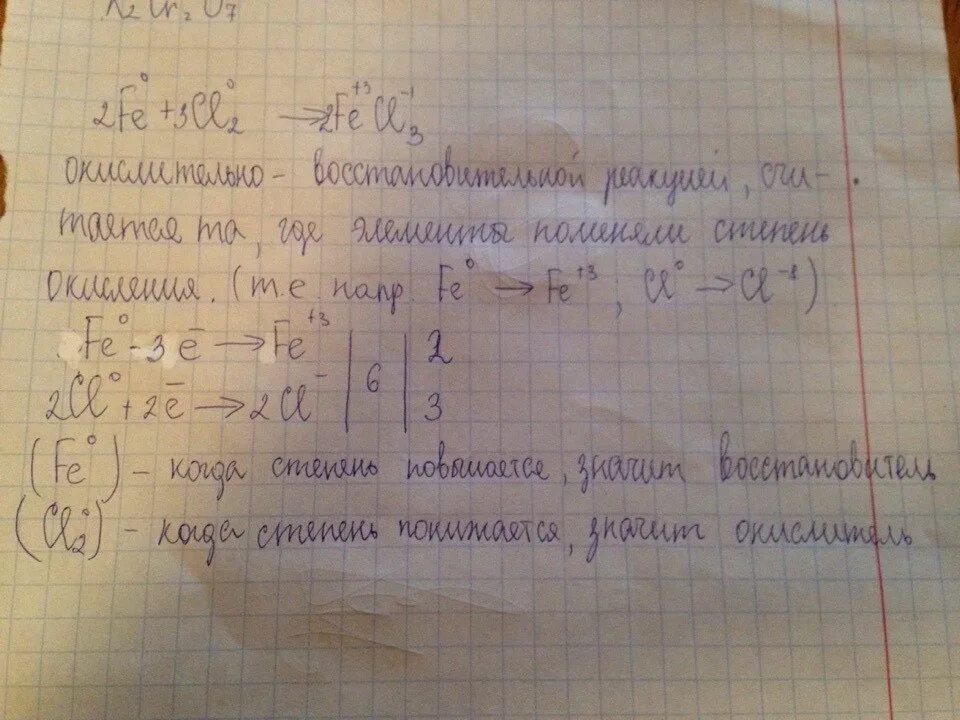 K₂Cr₂O₇
2Fe⁰ + 3Cl₂⁰ → 2Fe⁺³Cl₃⁻¹
окислительно - восстановительной реакцией, счи-
тается та, где элементы поменяли степень
окисления. (т.е напр. Fe⁰ → Fe⁺³ ; Cl⁰ → Cl⁻¹)
Fe⁰ - 3ē → Fe⁺³ | 6 | 2
2Cl⁰ + 2ē → 2Cl⁻ | 6 | 3
(Fe⁰) - когда степень повышается, значит восстановитель
(Cl₂⁰) - когда степень понижается, значит окислитель